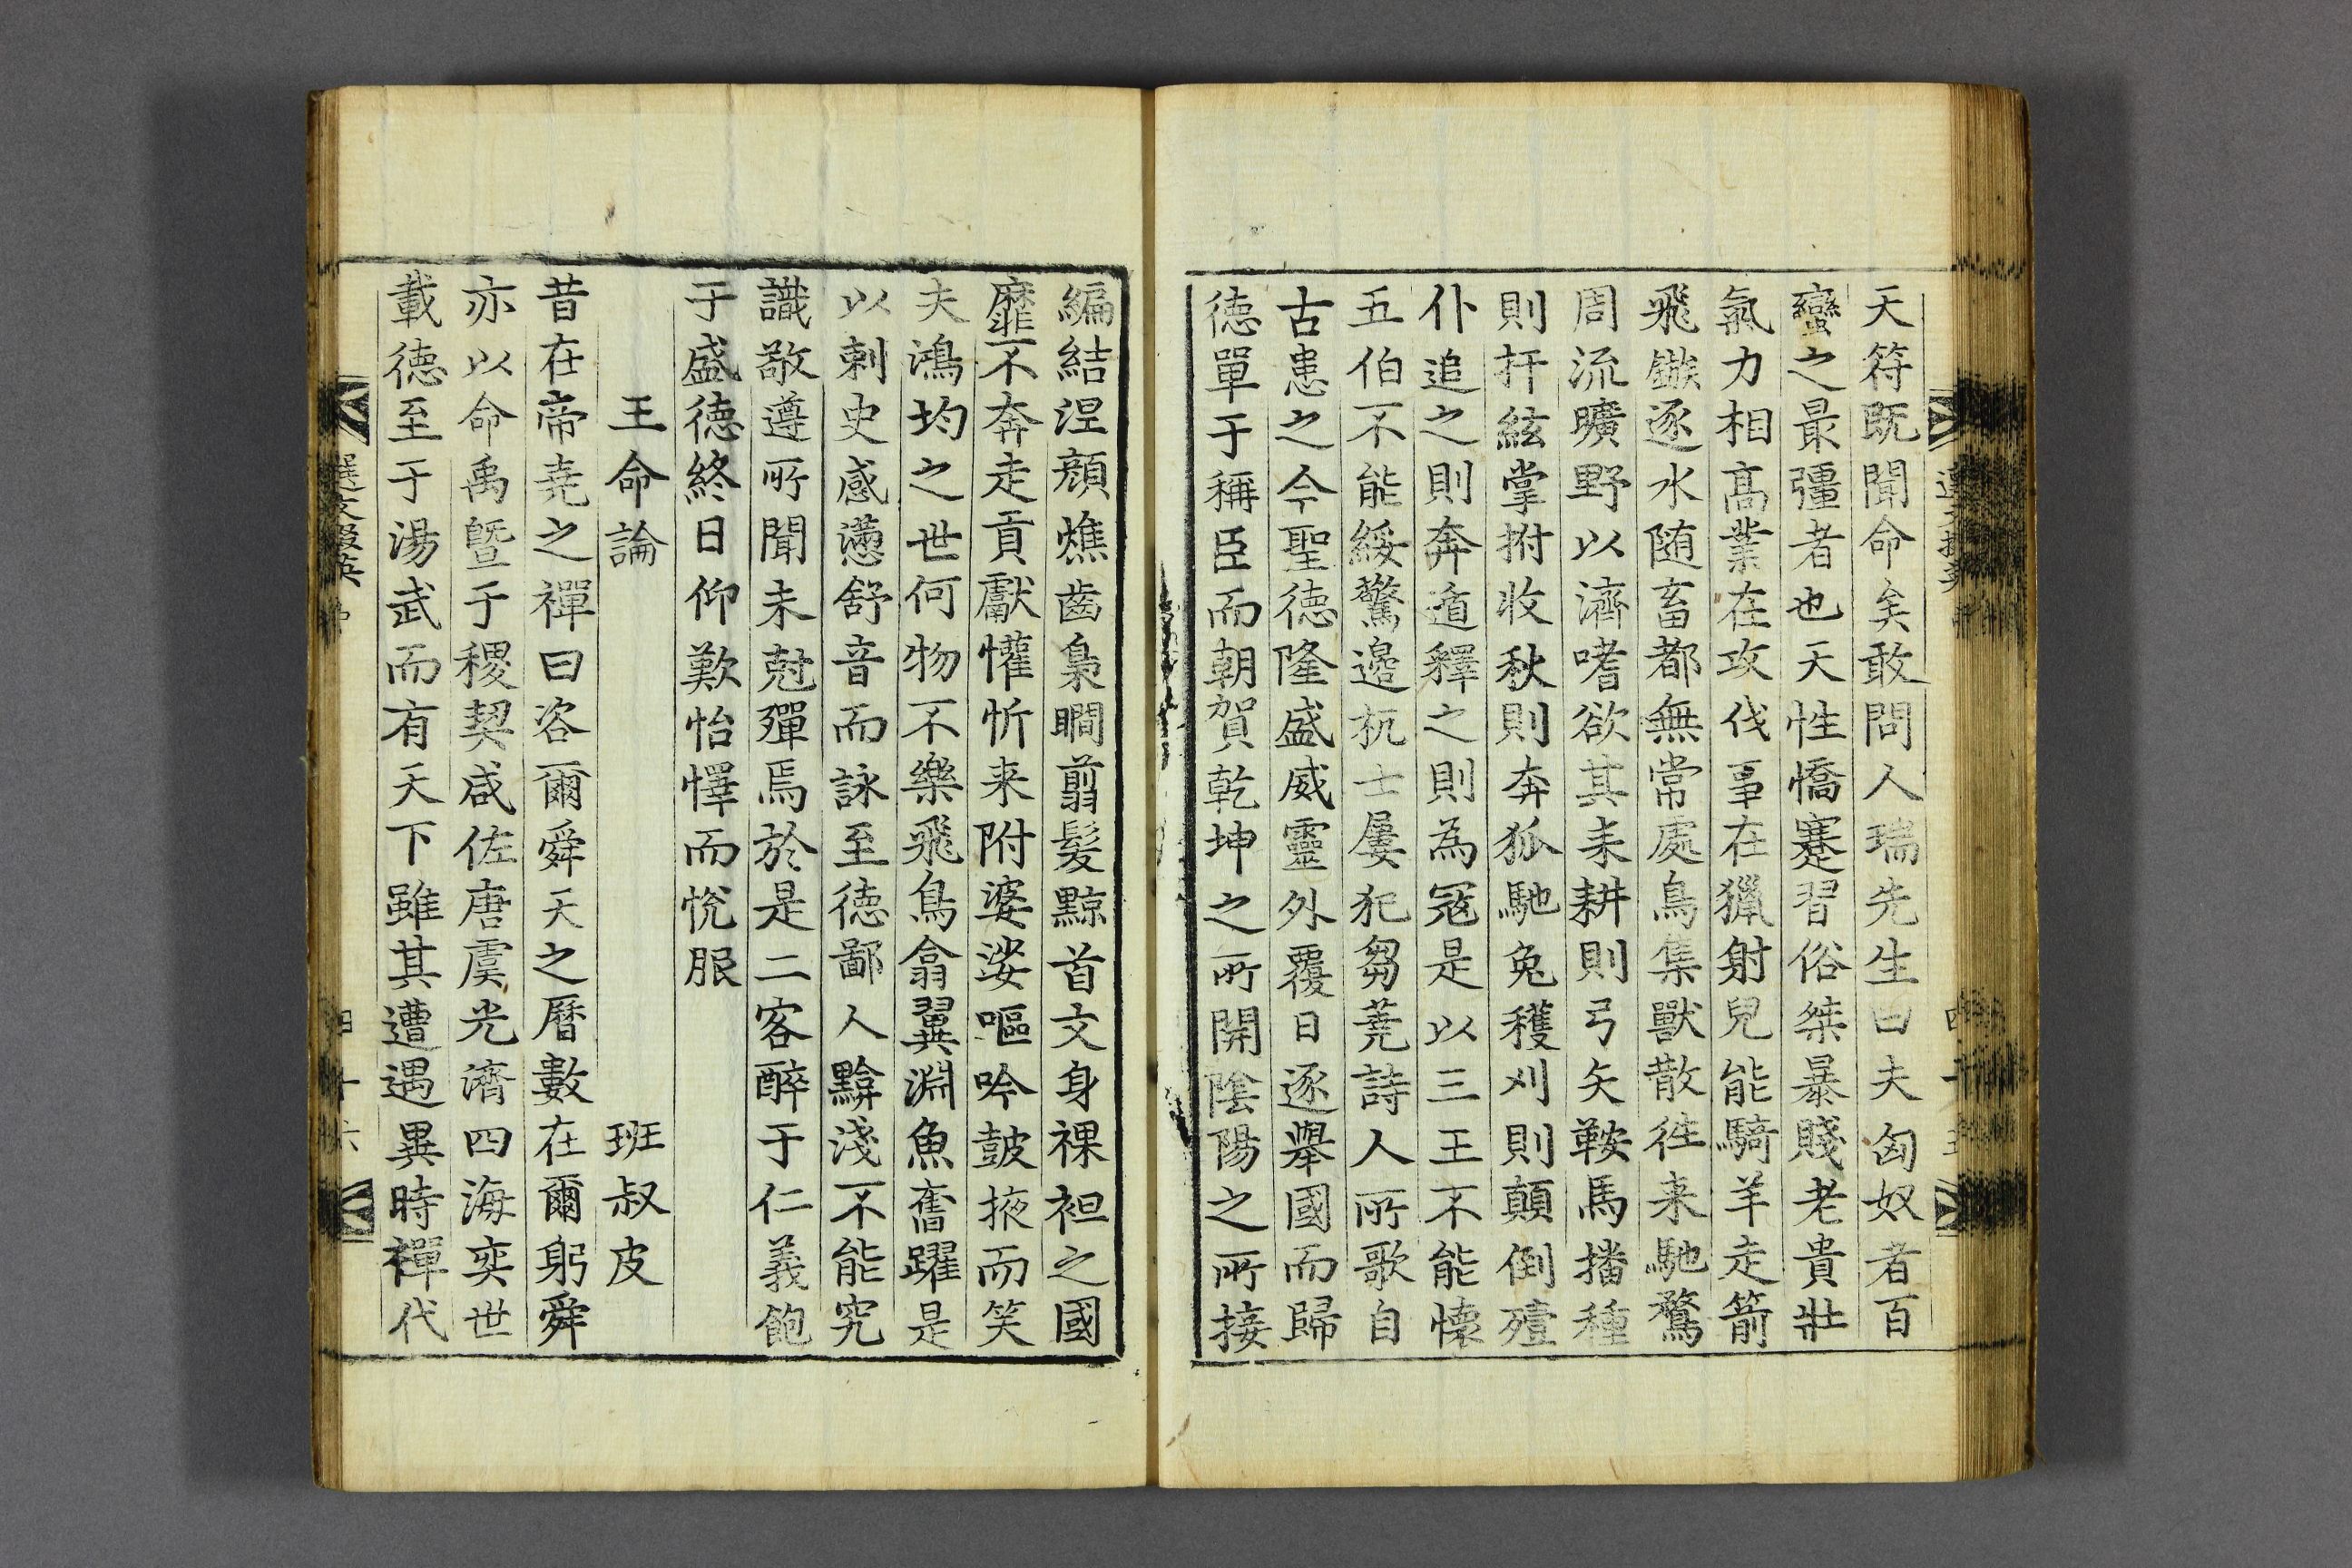 天符既聞命矣敢問人瑞先生曰夫匈奴者百
蠻之最彊者也天性憍蹇習俗桀暴賤老貴壯
氣力相髙業在攻伐事在獵射兒能騎羊走箭
飛鏃逐水随畜都無常處鳥集獸散徃来馳騖
周流曠野以濟嗜欲其耒耕則弓矢鞍馬播種
則扞絃掌拊收秋則奔狐馳兔穫刈則顛倒殪
仆追之則奔遁釋之則為冦是以三王不能懷
五伯不能綏驚邉扤士屢犯芻蕘詩人所歌自
古患之今聖德隆盛威靈外覆日逐舉國而歸
德單于稱臣而朝賀乾坤之所開陰陽之所接
編結沮顔燋齒梟瞷翦髮黥首文身祼袒之國
靡不奔走貢獻懽忻来附婆娑嘔吟鼓掖而笑
夫鴻均之世何物不樂飛鳥翕翼淵魚奮躍是
以刺史感懣舒音而詠至德鄙人黭淺不能究
識敬遵所聞未尅殫焉於是二客醉于仁義飽
于盛德終日仰歎怡懌而恱服
王命論 班叔皮
昔在帝尭之禪曰咨爾舜天之曆數在爾躬舜
亦以命禹曁于稷契咸佐唐虞光濟四海奕世
載德至于湯武而有天下雖其遭遇異時禪代
四十六